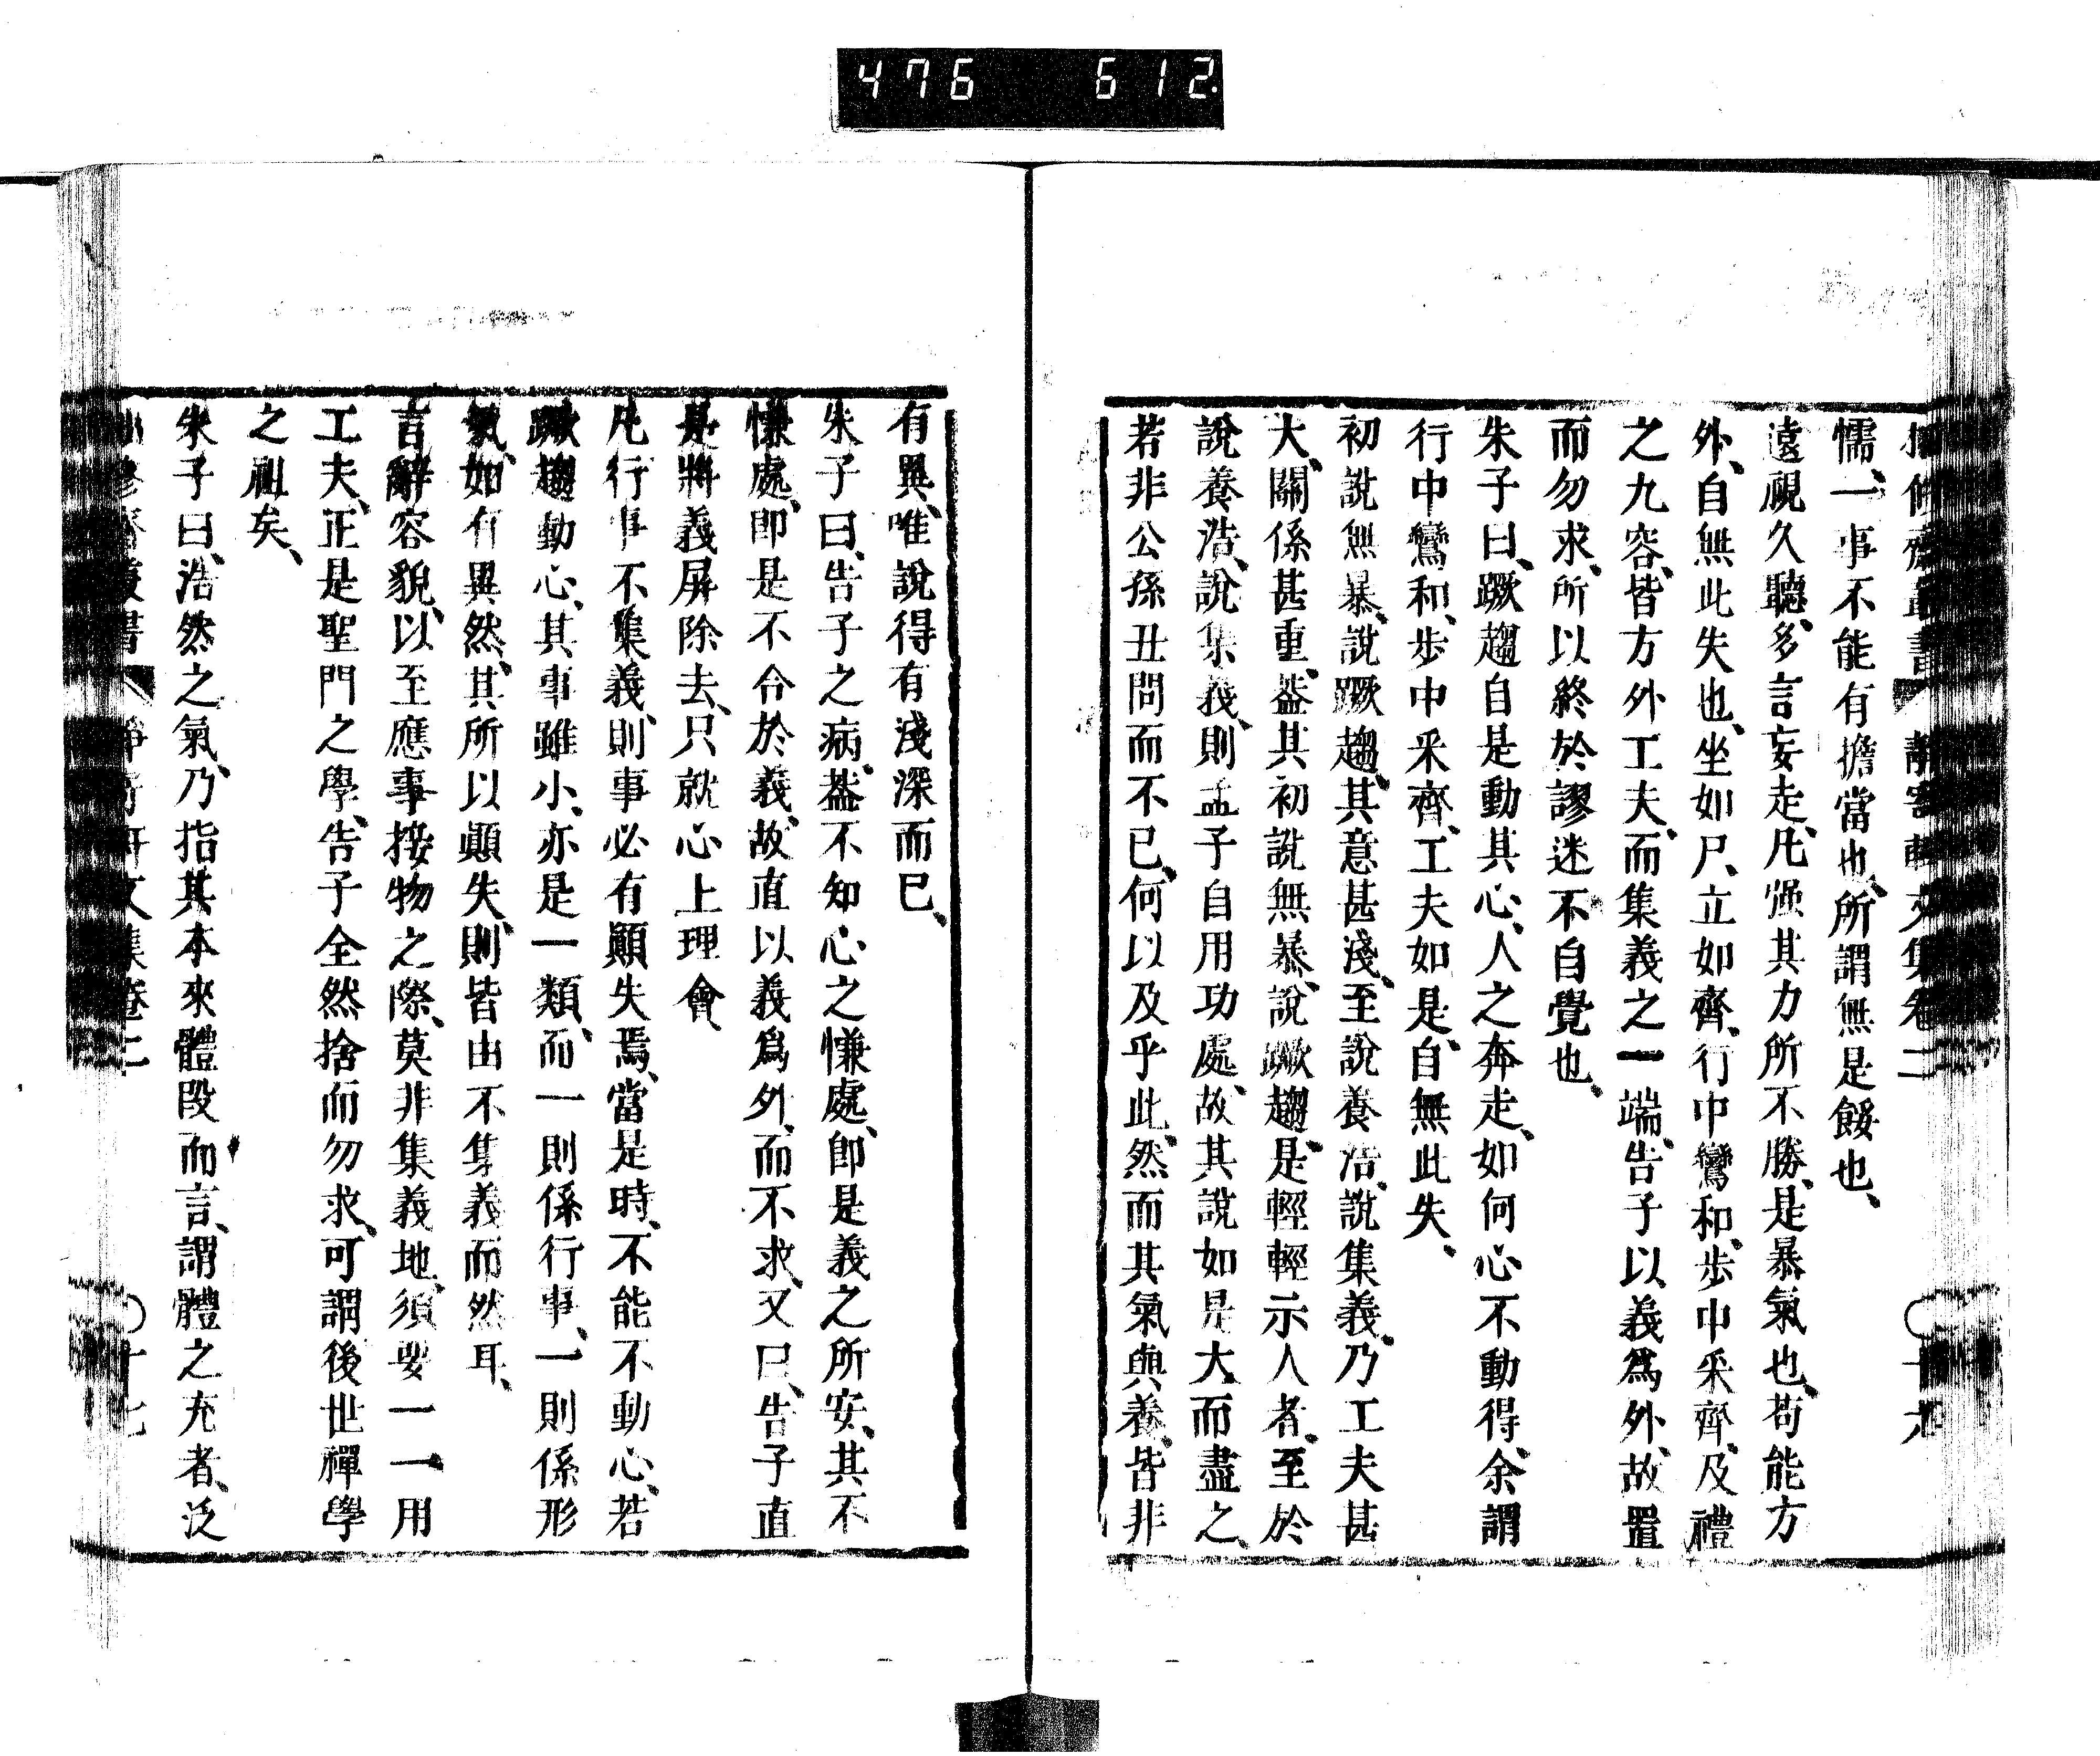 476 612
懦、一事不能有擔當也、所謂無是餒也、
遠視久聽、多言妄走、凡强其力所不勝、是暴氣也、苟能方
外、自無此失也、坐如尸、立如齊、行中鸞和、步中采齊、及禮
之九容、皆方外工夫、而集義之一端、告子以義爲外、故置
而勿求、所以終於謬迷不自覺也、
朱子曰、蹶趨自是動其心、人之奔走、如何心不動得、余謂
行中鸞和、步中采齊、工夫如是、自無此失、
初說無暴、說蹶趨、其意甚淺、至說養浩、說集義、乃工夫甚
大、關係甚重、葢其初說無暴、說蹶趨、是輕輕示人者、至於
說養浩、說集義、則孟子自用功處、故其說如是大而盡之、
若非公孫丑問而不已、何以及乎此、然而其氣與養、皆非
有異、唯說得有淺深而已、
朱子曰、告子之病、葢不知心之慊處、卽是義之所安、其不
慊處、卽是不合於義、故直以義爲外、而不求、又曰、告子直
是將義屏除去、只就心上理會、
凡行事不集義、則事必有顚失焉、當是時、不能不動心、若
蹶趨動心、其事雖小、亦是一類、而一則係行事、一則係形
氣、如有異然、其所以顚失、則皆由不集義而然耳、
言辭容貌、以至應事接物之際、莫非集義地、須要一一用
工夫、正是聖門之學、告子全然捨而勿求、可謂後世禪學
之祖矣、
朱子曰、浩然之氣、乃指其本來體段而言、謂體之充者、泛